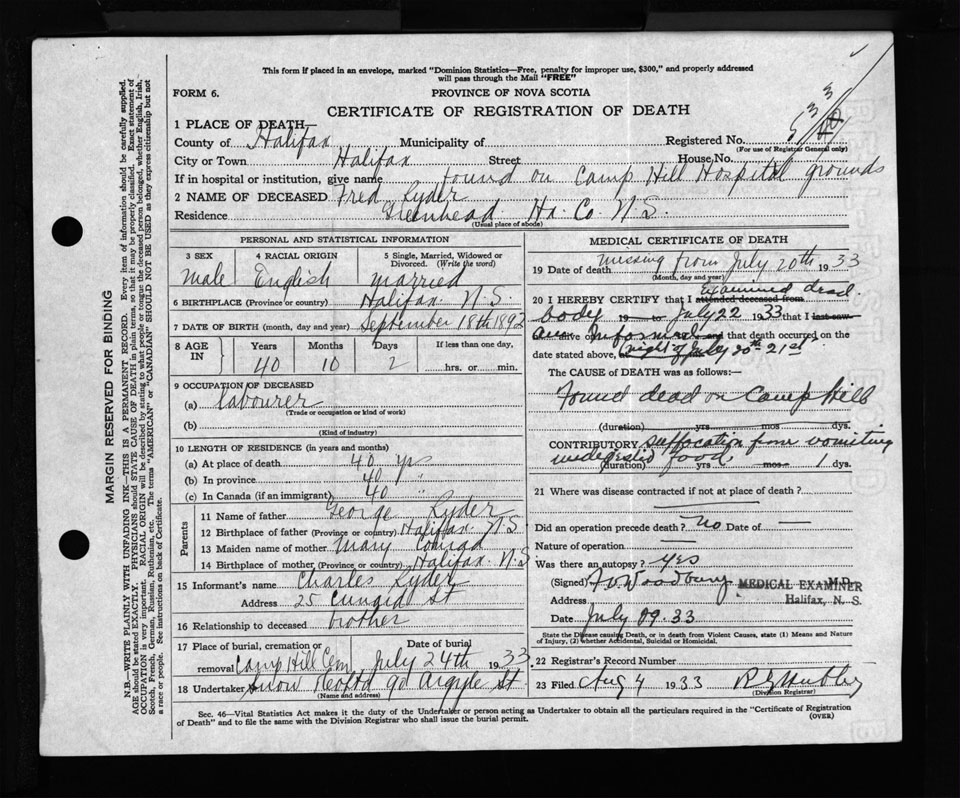 This form if placed in an envelope, marked "Dominion Statistics—Free, penalty for improper use, $300," and properly addressed
will pass through the Mail "FREE"
FORM 6. PROVINCE OF NOVA SCOTIA
CERTIFICATE OF REGISTRATION OF DEATH
1 PLACE OF DEATH
County of Halifax Municipality of Registered No. 533
(For use of Registrar General only)
City or Town Halifax Street House No.
If in hospital or institution, give name found on Camp Hill Hospital grounds
2 NAME OF DECEASED Fred Ryder
Residence Greenhead Hx. Co. N.S.
(Usual place of abode)
PERSONAL AND STATISTICAL INFORMATION
3 SEX 4 RACIAL ORIGIN 5 Single, Married, Widowed or
Divorced. (Write the word)
Male English married
6 BIRTHPLACE (Province or country) Halifax N.S.
7 DATE OF BIRTH (month, day and year) September 18th 1892
8 AGE IN Years Months Days If less than one day,
40 10 2 hrs. or min.
9 OCCUPATION OF DECEASED
(a) labourer
(Trade or occupation or kind of work)
(b)
(Kind of industry)
10 LENGTH OF RESIDENCE (in years and months)
(a) At place of death 40 yrs
(b) In province 40 "
(c) In Canada (if an immigrant) 40 "
Parents
11 Name of father George Ryder
12 Birthplace of father (Province or country) Halifax N.S.
13 Maiden name of mother Mary Conrad
14 Birthplace of mother (Province or country) Halifax N.S.
15 Informant's name Charles Ryder
Address 25 St
16 Relationship to deceased brother
17 Place of burial, cremation or Date of burial
removal Camp Hill Cem July 24th 1933
18 Undertaker Snow 90 Argyle St
(Name and address)
MEDICAL CERTIFICATE OF DEATH
19 Date of death missing from July 20th 1933
(Month, day and year)
20 I HEREBY CERTIFY that I attended deceased from examined dead
body 19 to July 22 1933 that I last saw
alive on Informed and that death occurred on the
date stated above, at night of July 20th-21st
The CAUSE of DEATH was as follows:—
Found dead on Camp Hill
(duration) yrs mos dys.
CONTRIBUTORY suffocation from vomiting
undigested food
(duration) yrs mos 1 dys.
21 Where was disease contracted if not at place of death?
Did an operation precede death? no Date of —
Nature of operation —
Was there an autopsy? yes
(Signed) Woodbury M.D.
MEDICAL EXAMINER
Address Halifax, N. S.
Date July 33
State the Disease causing Death, or in death from Violent Causes, state (1) Means and Nature
of Injury, (2) whether Accidental, Suicidal or Homicidal.
22 Registrar's Record Number
23 Filed Aug 4 1933
(Division Registrar)
Sec. 46—Vital Statistics Act makes it the duty of the Undertaker or person acting as Undertaker to obtain all the particulars required in the "Certificate of Registration
of Death" and to file the same with the Division Registrar who shall issue the burial permit. (OVER)
MARGIN RESERVED FOR BINDING
N.B.—WRITE PLAINLY WITH UNFADING INK—THIS IS A PERMANENT RECORD. Every item of information should be carefully supplied.
AGE should be stated EXACTLY. PHYSICIANS should STATE CAUSE OF DEATH in plain terms, so that it may be properly classified. Exact statement of
OCCUPATION is very important. RACIAL ORIGIN will be described by stating to what people or tongue the deceased person belonged, whether English, Irish,
Scotch, French, German, Russian, Ruthenian, etc. The terms "AMERICAN" or "CANADIAN" SHOULD NOT BE USED as they express citizenship but not
a race or people. See instructions on back of Certificate.